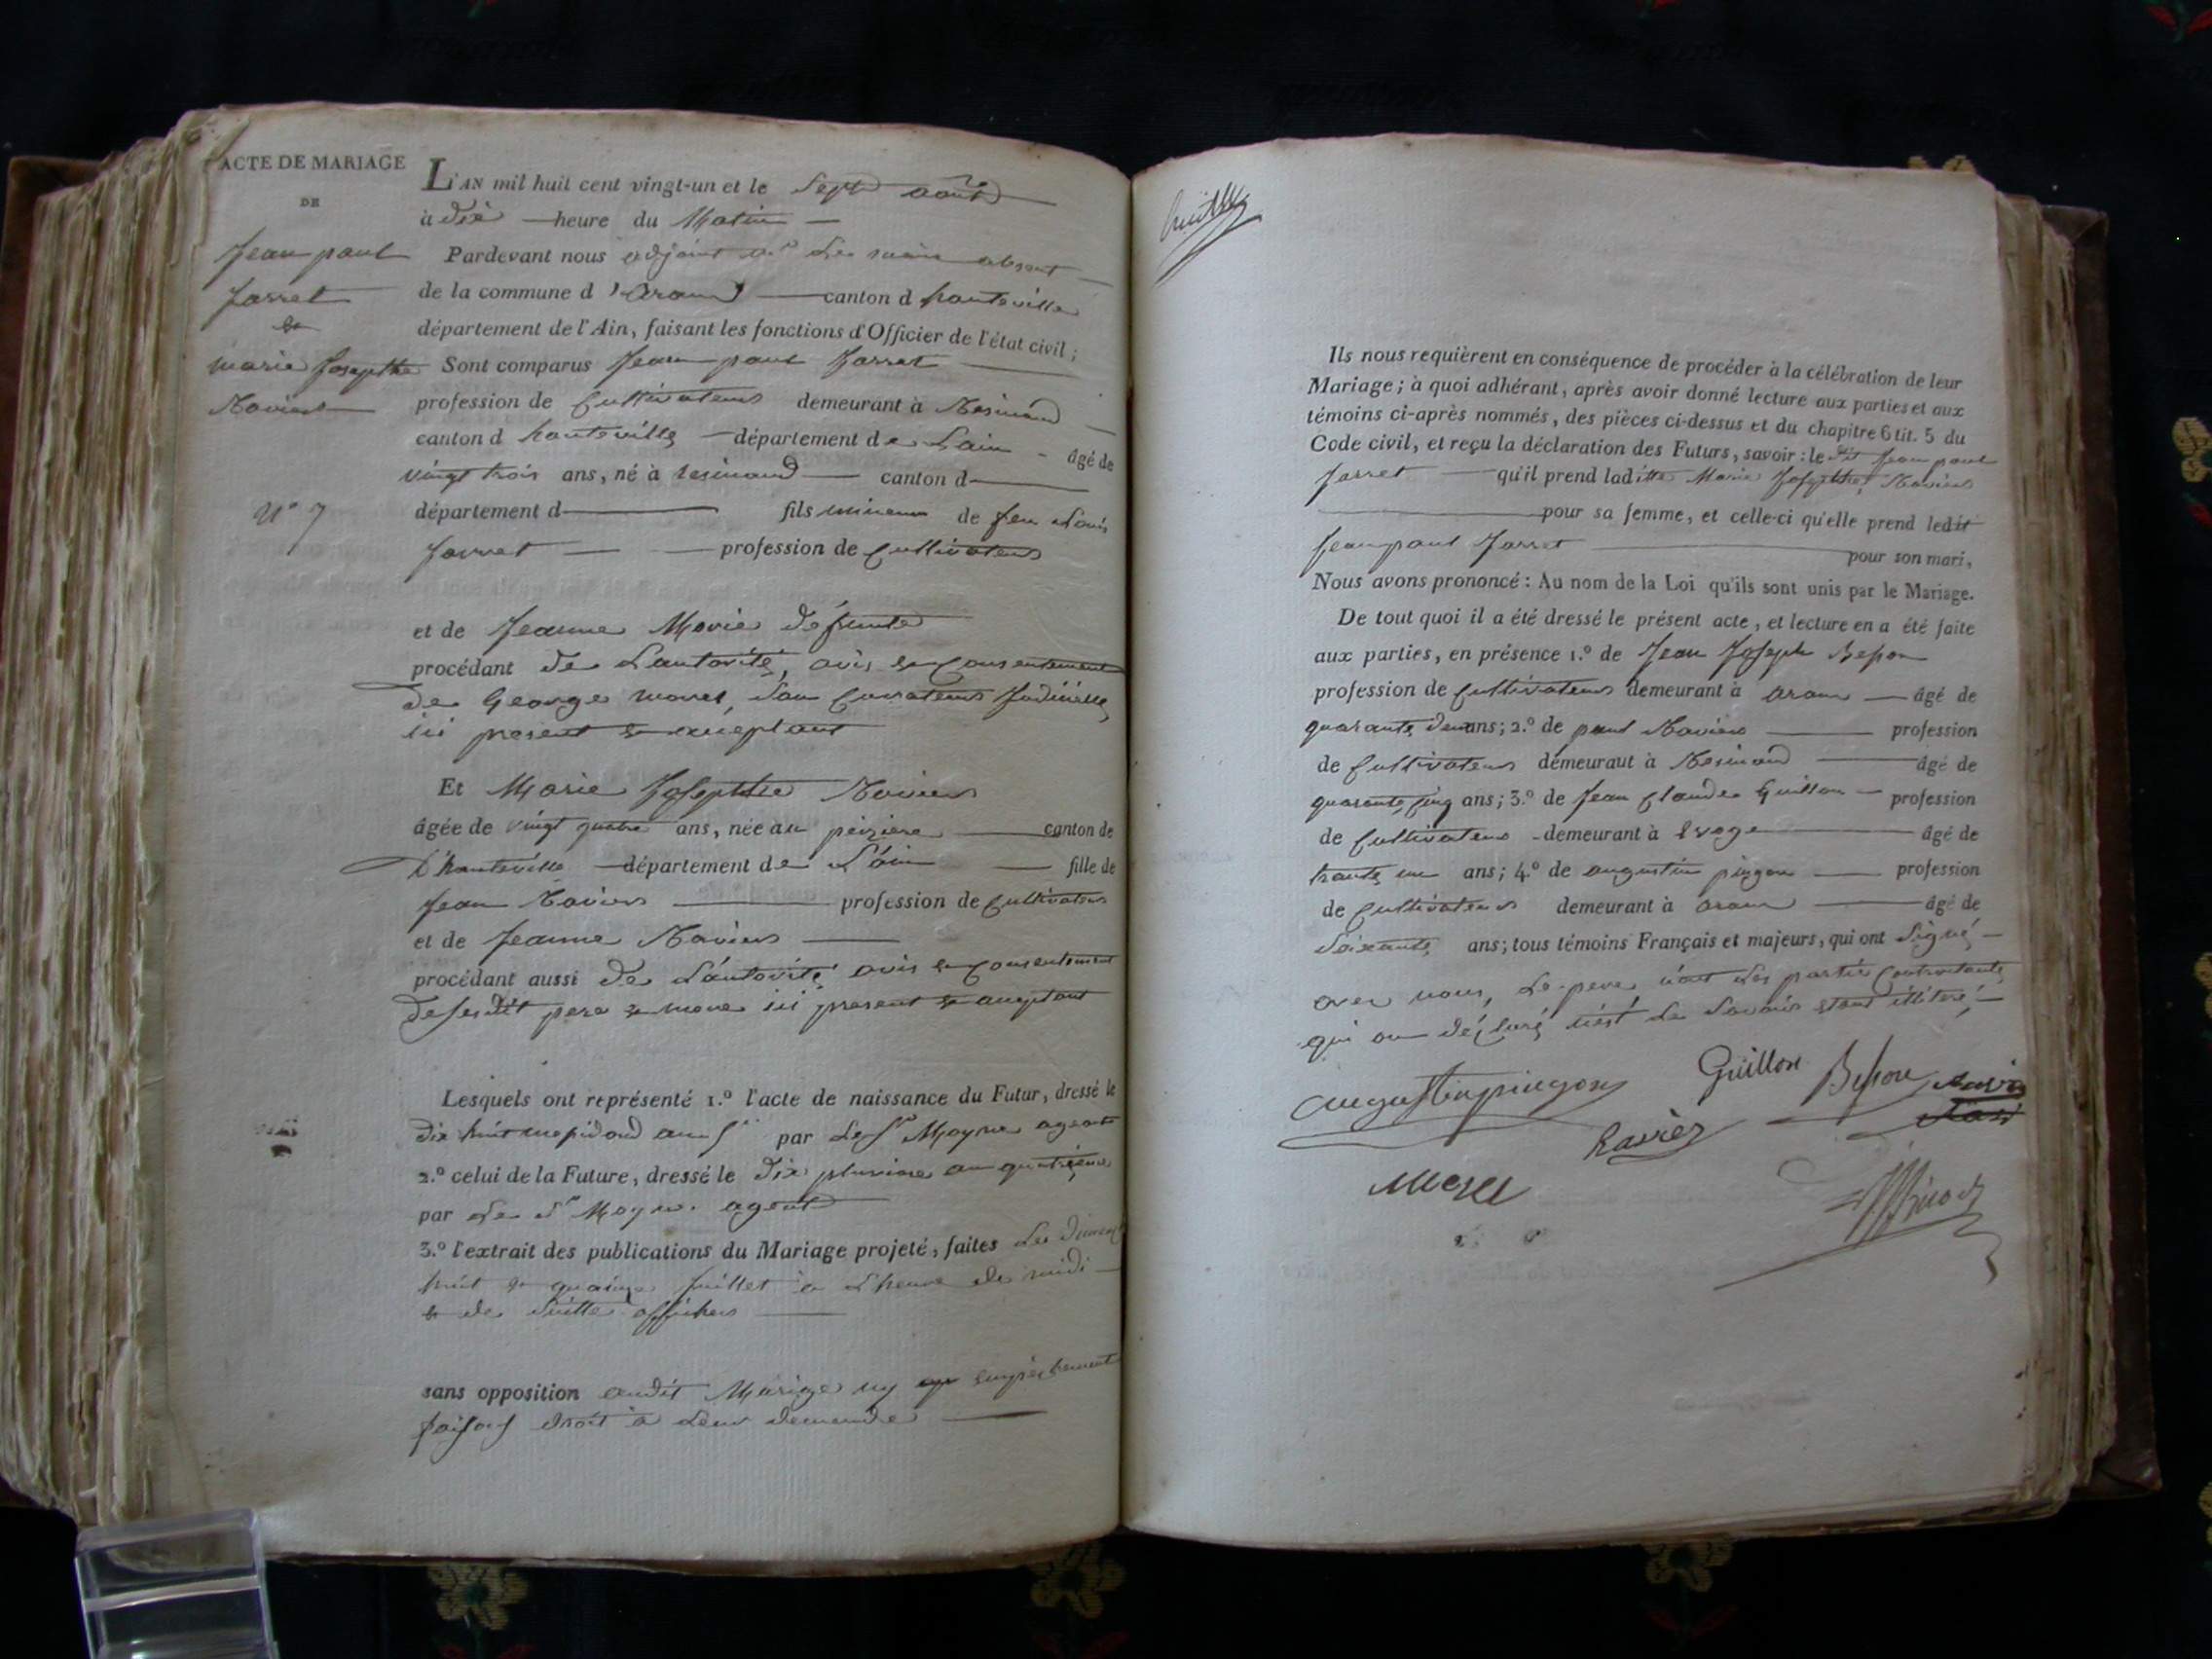 ACTE DE MARIAGE
DE
Jean paul
Jarret
&
marie Josepthe
Raviere
N° 7
L'AN mil huit cent vingt-un et le Sept aout
à dix heure du Matin
Pardevant nous adjoint Le maire absent
de la commune d'aranc canton d hauteville
département de l'Ain, faisant les fonctions d'Officier de l'état civil;
Sont comparus Jean paul Jarret
profession de Cultivateur demeurant à Resinand
canton d hauteville département de Lain âgé de
vingt trois ans, né à resinand canton d
département d fils mineur de feu Louis
Jarret profession de Cultivateur
et de Jeanne Marie défunte
procédant de Lautorité, avis & Consentement
de George morel, son Curateur Judicielle,
ici present & acceptant
Et Marie Josepthe Raviere
âgée de vingt quatre ans, née au canton de
D'hauteville département de L'ain fille de
Jean Raviere profession de Cultivateur
et de Jeanne Raviere
procédant aussi de L'autorité avis & consentement
de sesdit pere & mere ici present & acceptant
Lesquels ont représenté 1.º l'acte de naissance du Futur, dressé le
dix huit an par Le Sr Moyne agent
2.º celui de la Future, dressé le dix pluviose an quatrieme
par Le Sr Moyne agent
3.º l'extrait des publications du Mariage projeté, faites Les
huit & quainze Juillet a L'heure de midi
& de Suitte affiches
sans opposition audit Mariage ny empêchement
faisant droit a Leur demande
Ils nous requièrent en conséquence de procéder à la célébration de leur
Mariage; à quoi adhérant, après avoir donné lecture aux parties et aux
témoins ci-après nommés, des pièces ci-dessus et du chapitre 6 tit. 5 du
Code civil, et reçu la déclaration des Futurs, savoir: le dit Jean paul
Jarret qu'il prend laditte Marie Josepthe Raviere
pour sa femme, et celle-ci qu'elle prend ledit
Jean paul Jarret pour son mari,
Nous avons prononcé: Au nom de la Loi qu'ils sont unis par le Mariage.
De tout quoi il a été dressé le présent acte, et lecture en a été faite
aux parties, en présence 1.º de Jean Joseph Besson
profession de Cultivateur demeurant à aranc âgé de
quarante deux ans; 2.º de paul Raviere profession
de Cultivateur demeurant à Resinand âgé de
quarante cinq ans; 3.º de Jean Claude Guillon profession
de Cultivateur demeurant à Evoge âgé de
trante un ans; 4.º de augustin pingon profession
de Cultivateur demeurant à aranc âgé de
Soixante ans; tous témoins Français et majeurs, qui ont Signé
avec nous, Le pere n'ont Les partie Contractante
qui on déclaré ne Le Savoir etant illiteré
augustin pingon
Guillon
Besson
Ravier
Morel